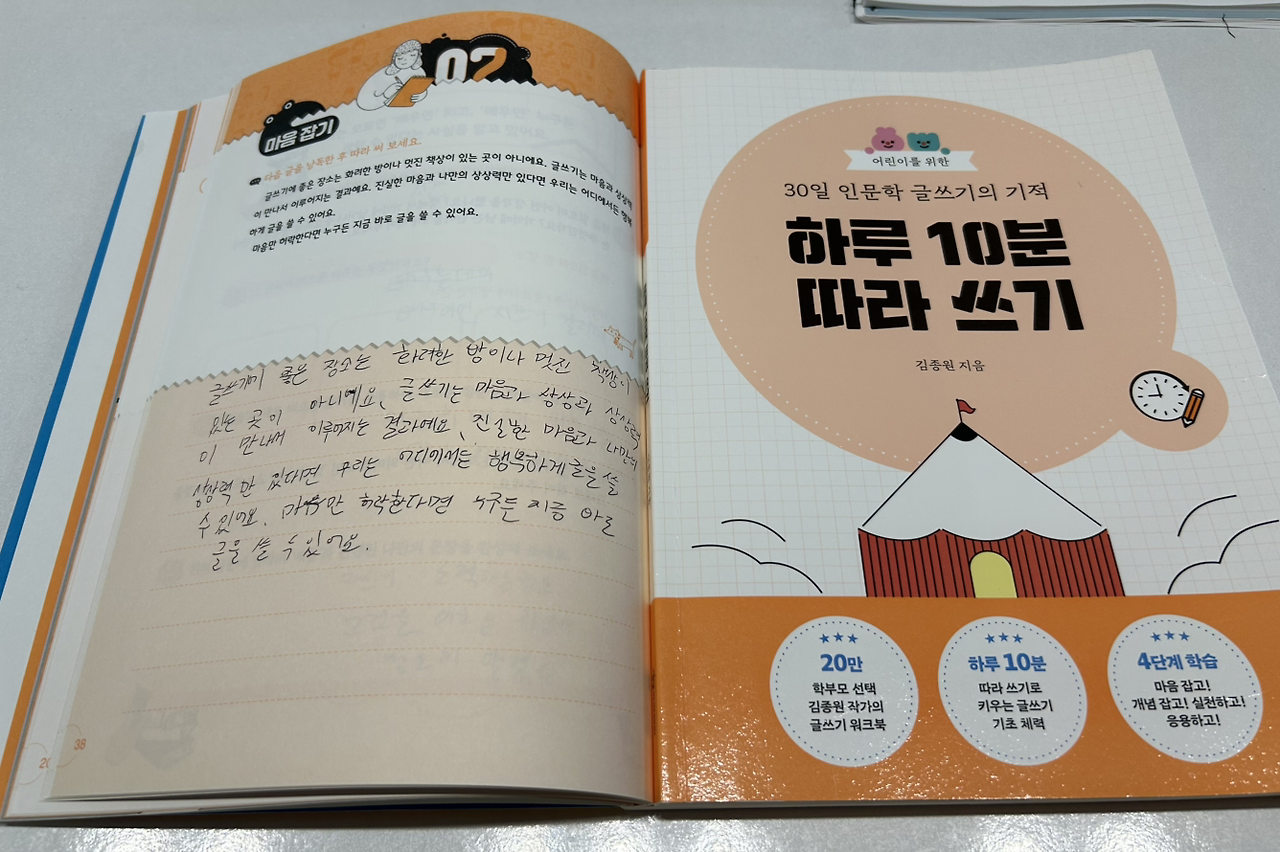 07
마음 잡기
다음 글을 낭독한 후 따라 써 보세요.
글쓰기에 좋은 장소는 화려한 방이나 멋진 책상이 있는 곳이 아니에요. 글쓰기는 마음과 상상력
이 만나서 이루어지는 결과예요. 진실한 마음과 나만의 상상력만 있다면 우리는 어디에서든 행복
하게 글을 쓸 수 있어요.
마음만 허락한다면 누구든 지금 바로 글을 쓸 수 있어요.
글쓰기에 좋은 장소는 화려한 방이나 멋진 책상이
있는 곳이 아니예요. 글쓰기는 마음과 상상과 상상력
이 만나서 이루어지는 결과예요. 진실한 마음과 나만의
상상력만 있다면 우리는 어디에서든 행복하게 글을 쓸
수 있어요. 마음만 허락한다면 누구든 지금 바로
글을 쓸 수 있어요.
38
어린이를 위한
30일 인문학 글쓰기의 기적
하루 10분
따라 쓰기
김종원 지음
20만
학부모 선택
김종원 작가의
글쓰기 워크북
하루 10분
따라 쓰기로
키우는 글쓰기
기초 체력
4단계 학습
마음 잡고!
개념 잡고! 실천하고!
응용하고!